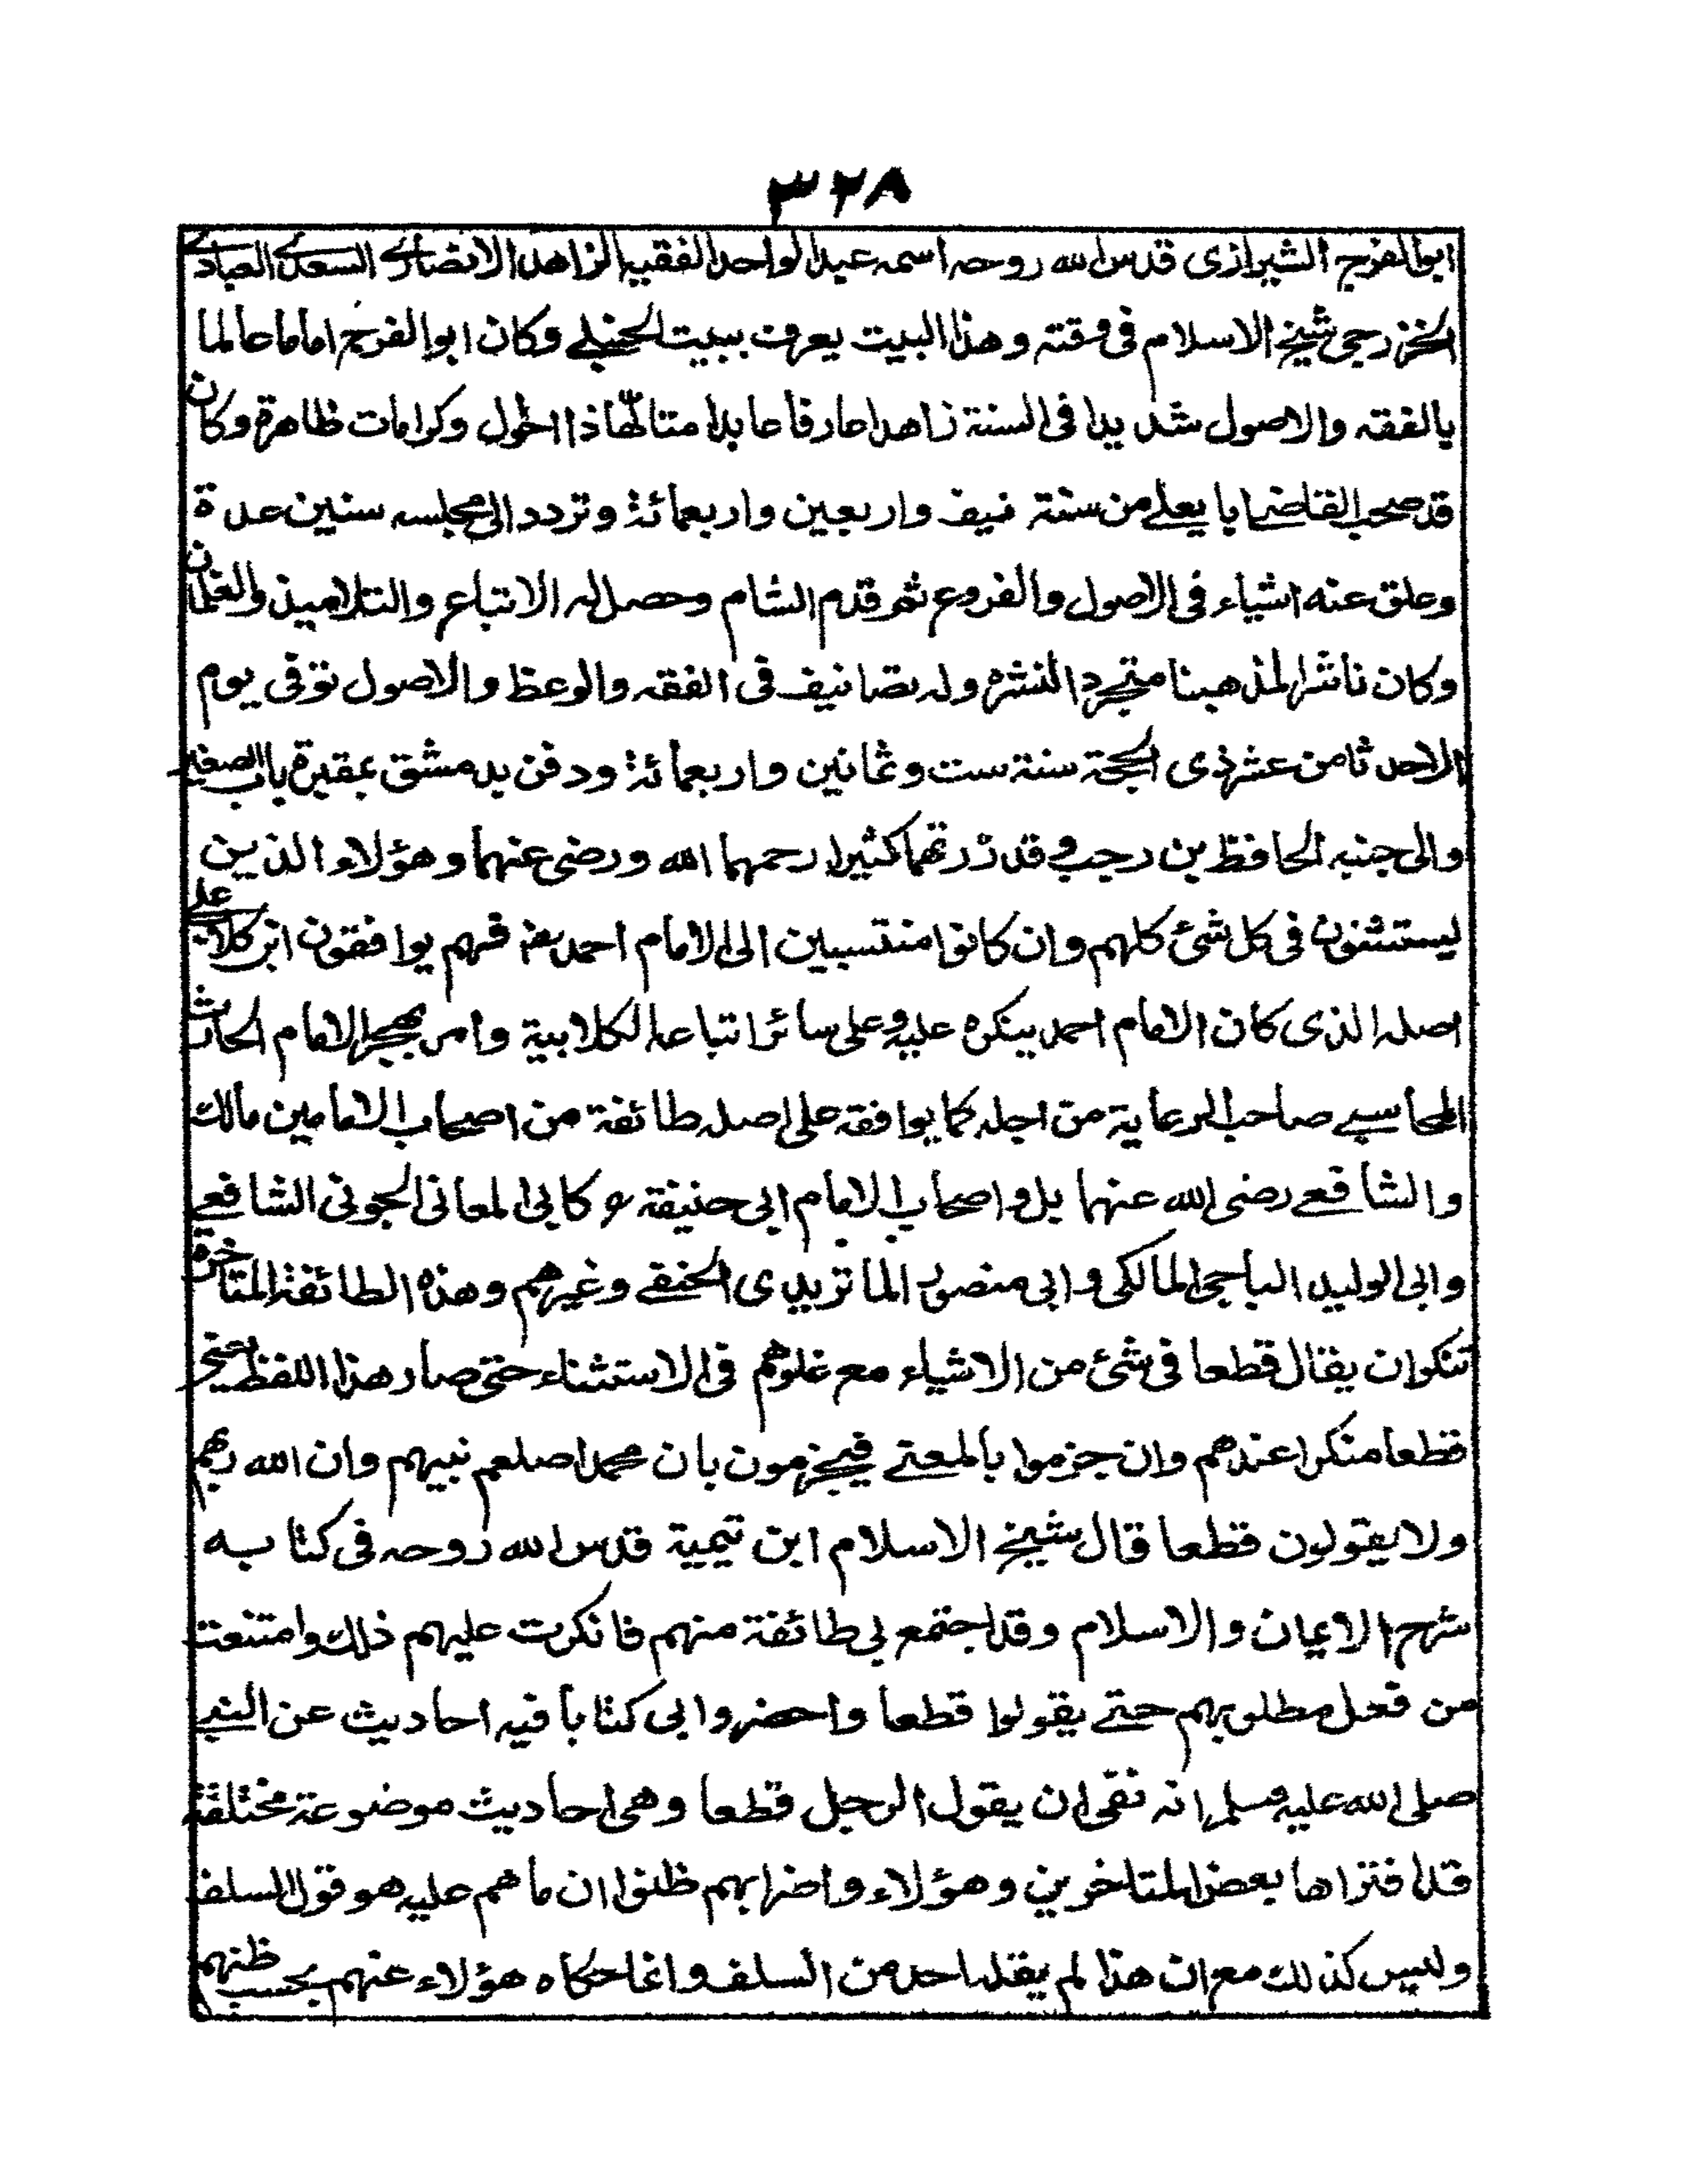 ٣٢٨
ابوالفرج الشيرازى قدس الله روحه اسمه عبد الواحد الفقيه الزاهد الانصارى السعدى العبادى
الخزرجى شيخ الاسلام فى وقته وهذا البيت يعرف ببيت الحنبلى وكان ابو الفرج اماما عالما
بالفقه والاصول شديدا فى السنة زاهدا عارفا عابدا متالها ذا احوال وكرامات ظاهرة وكان
قد صحب القاضى ابا يعلى من سنة نيف واربعين واربعمائة وتردد الى مجلسه سنين عدة
وعلق عنه اشياء فى الاصول والفروع ثم قدم الشام وحصل له الاتباع والتلاميذ والغلمان
وكان ناشرا لمذهبنا متجردا لنشره وله تصانيف فى الفقه والوعظ والاصول توفى يوم
الاحد ثامن عشر ذى الحجة سنة ست وثمانين واربعمائة ودفن بدمشق بمقبرة باب الصغير
والى جنبه الحافظ بن رجب وقد زرتهما كثيرا رحمهما الله ورضى عنهما وهؤلاء الذين
يستثنون فى كل شئ كلهم وان كانوا منتسبين الى الامام احمد رضه فهم يوافقون ابن كلاب على
اصله الذى كان الامام احمد ينكره عليه وعلى سائر اتباعه الكلابية وامر بهجر الامام الحارث
المحاسبى صاحب الرعاية من اجله كما يوافقه على اصله طائفة من اصحاب الامامين مالك
والشافعى رضى الله عنهما بل واصحاب الامام ابى حنيفة كابى المعانى الجونى الشافعى
وابى الوليد الباجى المالكى وابى منصور الماتريدى الحنفى وغيرهم وهذه الطائفة المتاخرة
تنكر ان يقال قطعا فى شئ من الاشياء مع غلوهم فى الاستثناء حتى صار هذا اللفظ
قطعا منكرا عندهم وان جزموا بالمعنى فيجزمون بان محمدا صلعم نبيهم وان الله ربهم
ولا يقولون قطعا قال شيخ الاسلام ابن تيمية قدس الله روحه فى كتابه
شرح الايمان والاسلام وقد اجتمع بى طائفة منهم فانكرت عليهم ذلك وامتنعت
من فعل مطلوبهم حتى يقولوا قطعا واحضروا بى كتابا فيه احاديث عن النبى
صلى الله عليه وسلم انه نهى ان يقول الرجل قطعا وهى احاديث موضوعة مختلقة
قد افتراها بعض المتاخرين وهؤلاء واضرابهم ظنوا ان ما هم عليه هو قول السلف
وليس كذلك مع ان هذا لم يقله احد من السلف وانما حكاه هؤلاء عنهم بحسب ظنهم